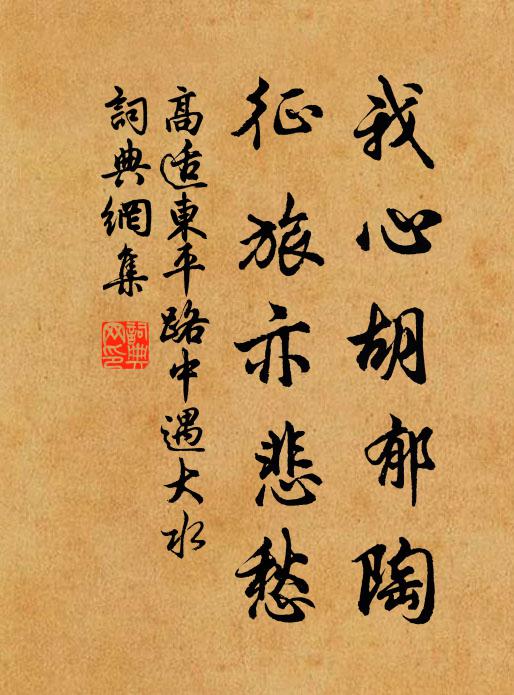 我心胡郁陶
征旅亦悲愁
高适東平路中遇大水
詞典網集
詞典
网印